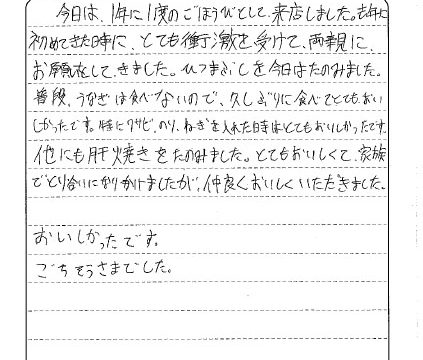 今日は、1年に1度のごほうびとして、来店しました。去年に
初めてきた時に、とても衝激を受けて、両親に、
お願いをして、きました。ひつまぶしを今日はたのみました。
普段、うなぎは食べないので、久しぶりに食べてとてもおい
しかったです。特にワサビ、のり、ねぎを入れた時はとてもおいしかったです。
他にも肝焼きをたのみました。とてもおいしくて、家族
でとり合いになりかけましたが、仲良くおいしくいただきました。
おいしかったです。
ごちそうさまでした。